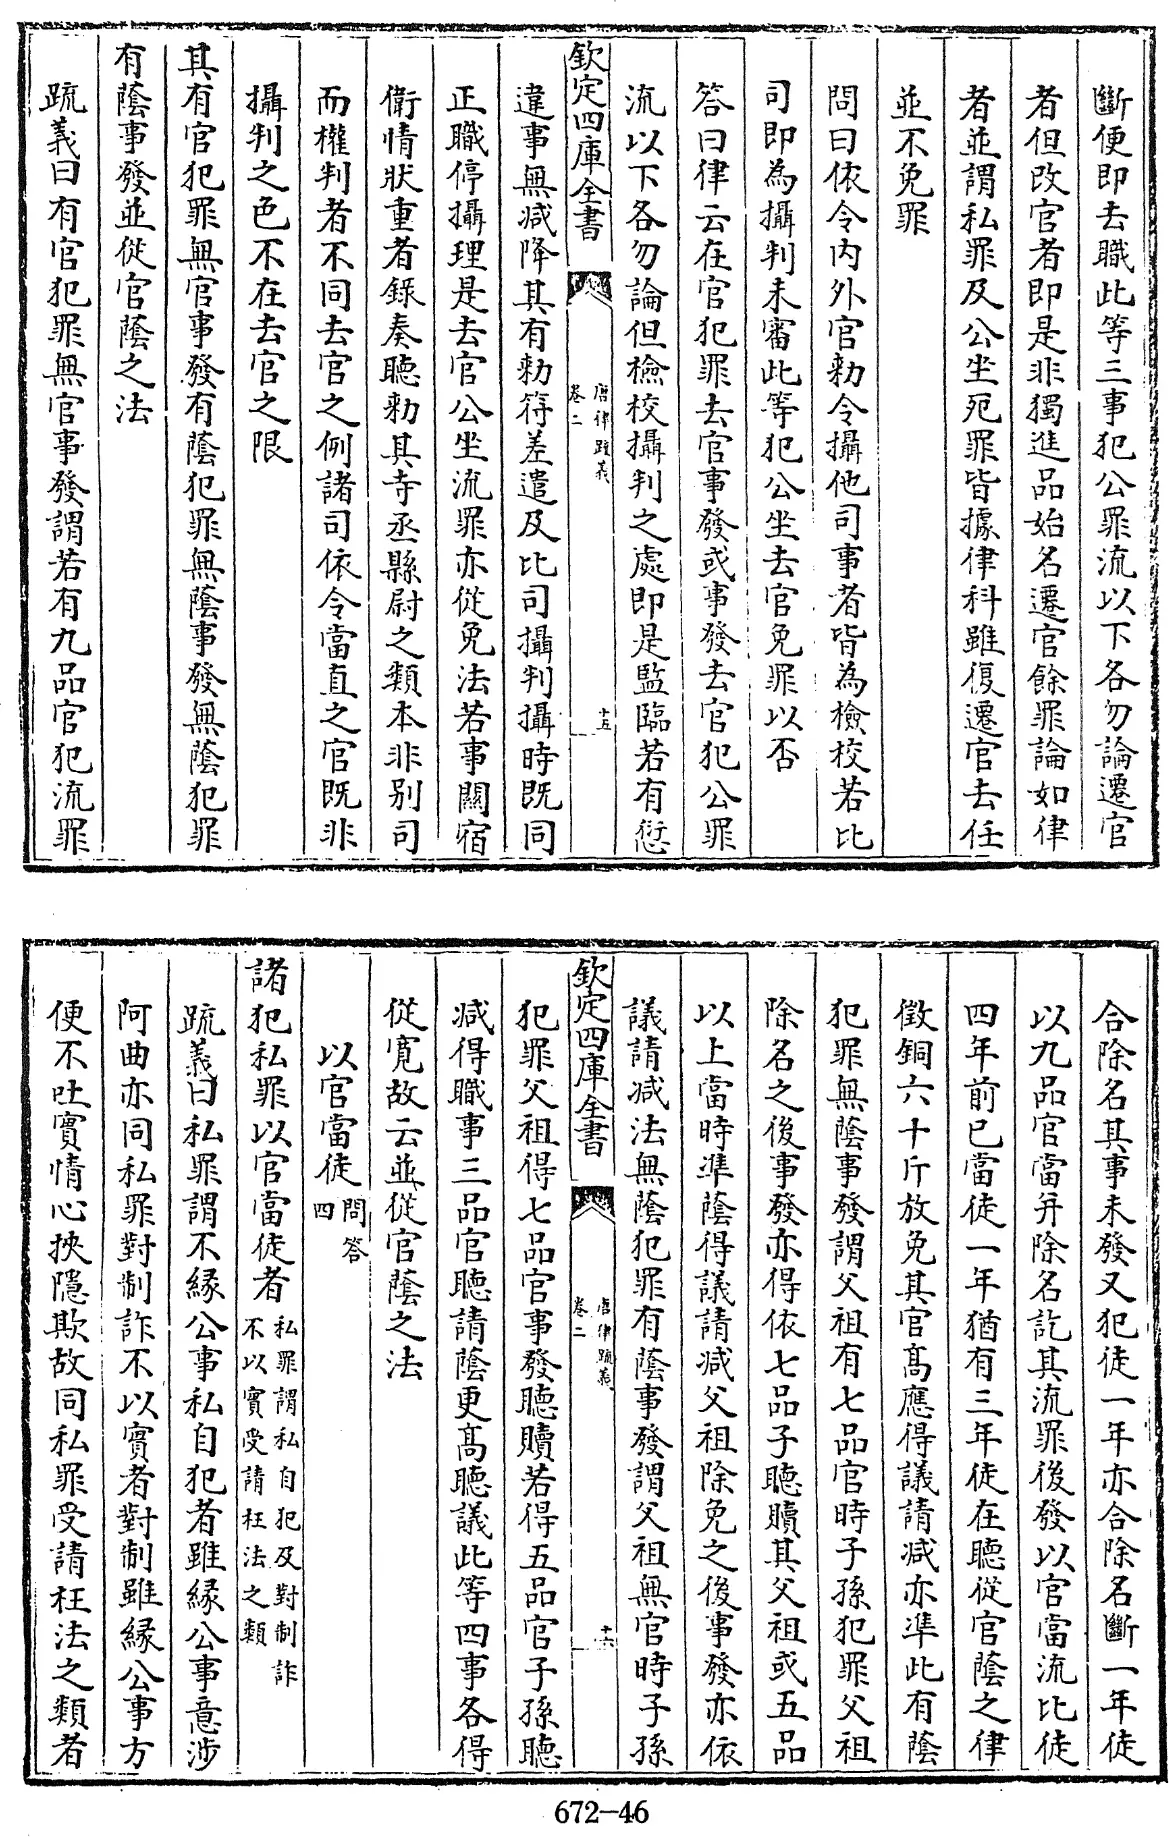 斷便即去職此等三事犯公罪流以下各勿論遷官
者但改官者即是非獨進品始名遷官餘罪論如律
者並謂私罪及公坐死罪皆據律科雖復遷官去任
並不免罪
問曰依令內外官勅令攝他司事者皆為檢校若比
司即為攝判未審此等犯公坐去官免罪以否
答曰律云在官犯罪去官事發或事發去官犯公罪
流以下各勿論但檢校攝判之處即是監臨若有愆
欽定四庫全書
唐律疏義
卷二
十五
違事無減降其有勅符差遣及比司攝判攝時既同
正職停攝理是去官公坐流罪亦從免法若事關宿
衛情狀重者錄奏聽勅其寺丞縣尉之類本非別司
而權判者不同去官之例諸司依令當直之官既非
攝判之色不在去官之限
其有官犯罪無官事發有蔭犯罪無蔭事發無蔭犯罪
有蔭事發並從官蔭之法
疏義曰有官犯罪無官事發謂若有九品官犯流罪
合除名其事未發又犯徒一年亦合除名斷一年徒
以九品官當并除名訖其流罪後發以官當流比徒
四年前已當徒一年猶有三年徒在聽從官蔭之律
徵銅六十斤放免其官髙應得議請減亦準此有蔭
犯罪無蔭事發謂父祖有七品官時子孫犯罪父祖
除名之後事發亦得依七品子聽贖其父祖或五品
以上當時準蔭得議請減父祖除免之後事發亦依
議請減法無蔭犯罪有蔭事發謂父祖無官時子孫
欽定四庫全書
唐律疏義
卷二
十六
犯罪父祖得七品官事發聽贖若得五品官子孫聽
減得職事三品官聽請蔭更髙聽議此等四事各得
從寛故云並從官蔭之法
以官當徒問答四
諸犯私罪以官當徒者私罪謂私自犯及對制詐不以實受請枉法之類
疏義曰私罪謂不縁公事私自犯者雖縁公事意涉
阿曲亦同私罪對制詐不以實者對制雖縁公事方
便不吐實情心挾隱欺故同私罪受請枉法之類者
672-46